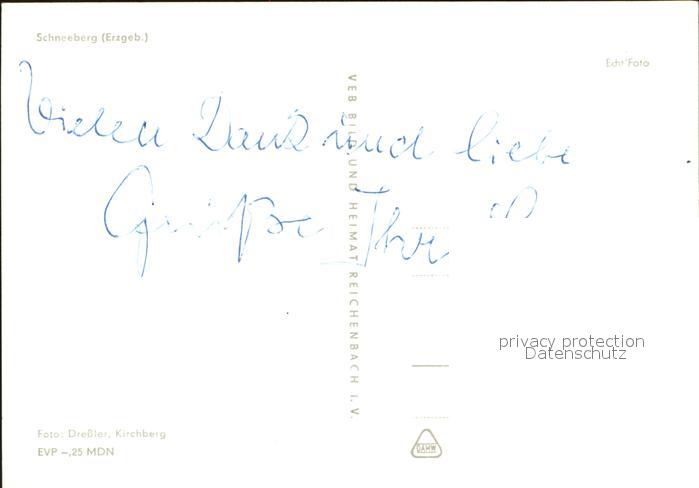 Schneeberg (Erzgeb.)
Echt Foto
Vielen Dank und liebe
Grüße Ihr
VEB BILD UND HEIMAT REICHENBACH I. V.
privacy protection
Datenschutz
Foto: Dreßler, Kirchberg
EVP –,25 MDN
DAMW